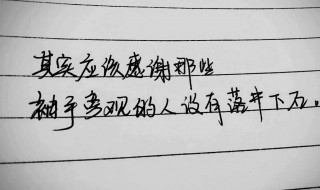 其实应该感谢那些
袖手旁观的人没有落井下石。